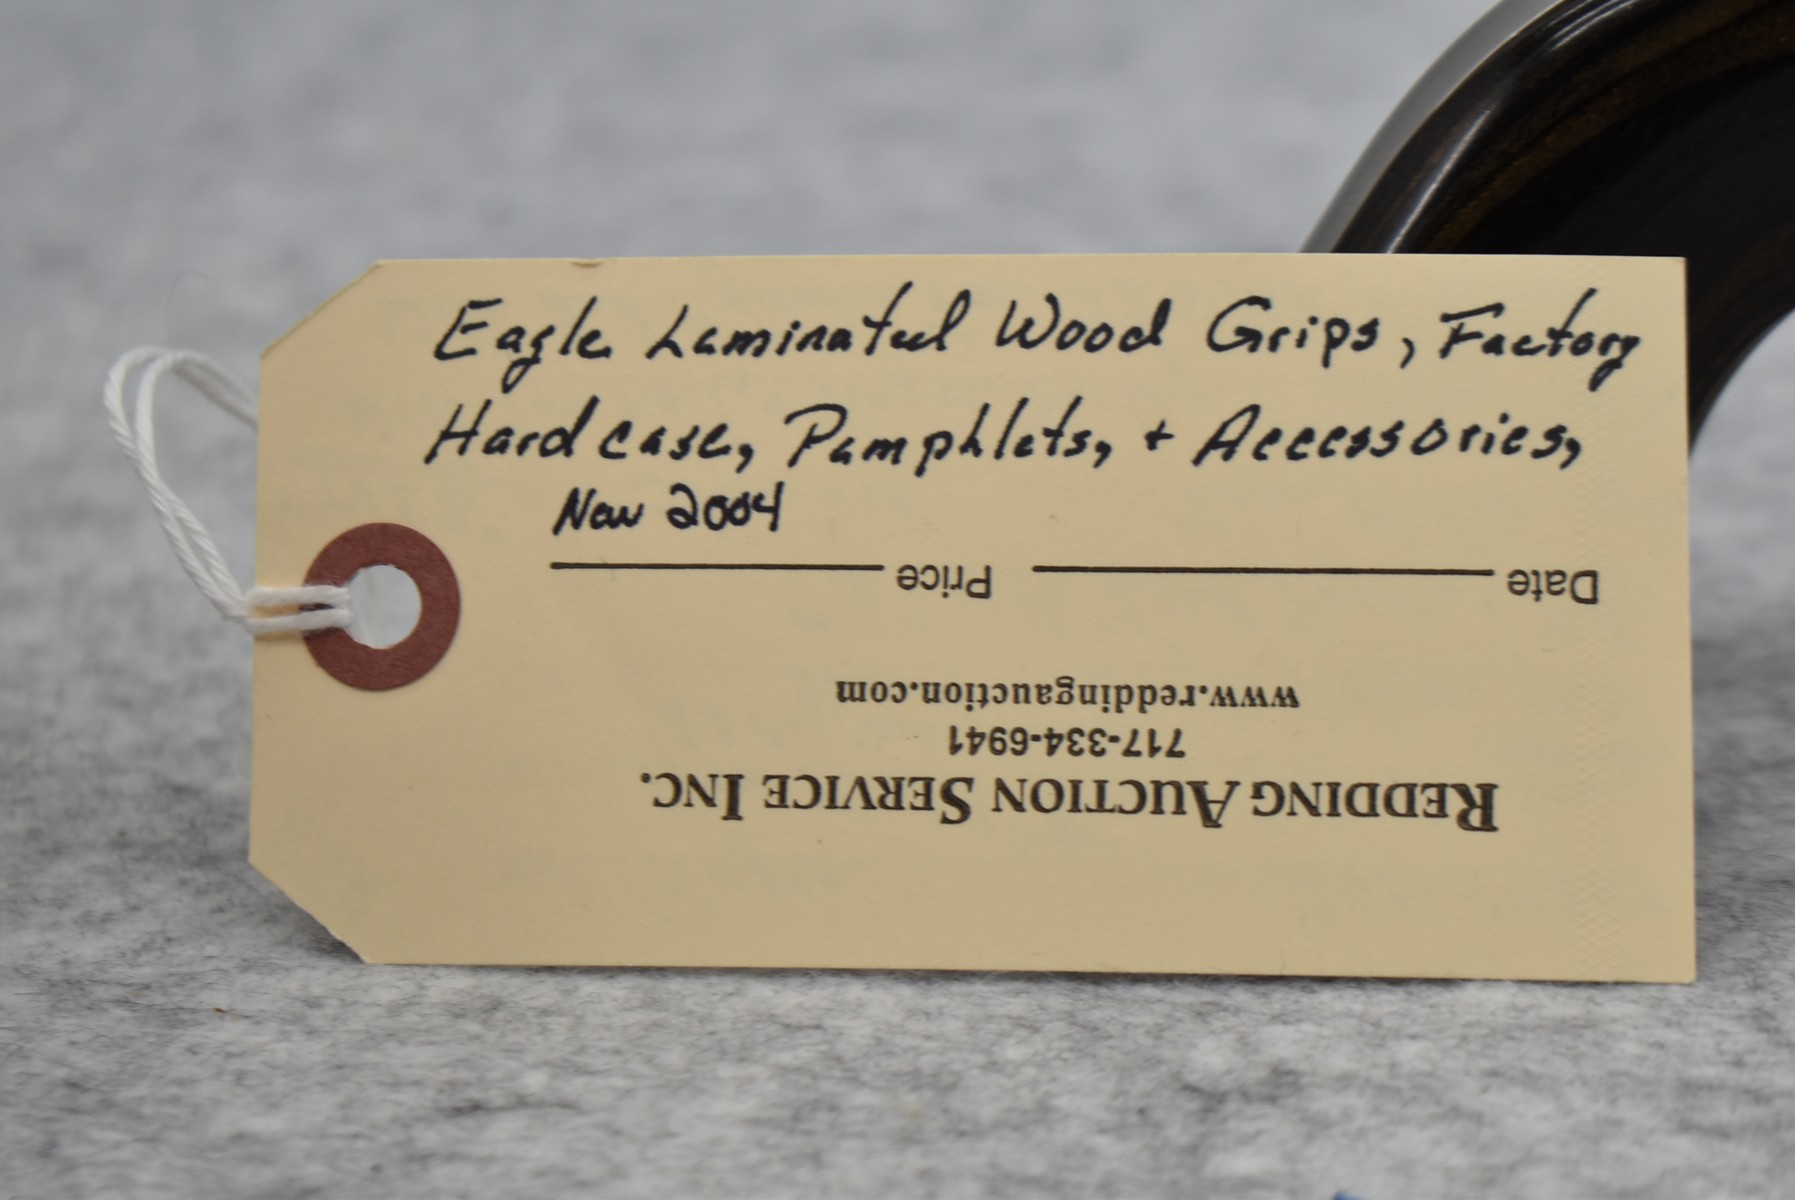 Eagle Laminated Wood Grips, Factory
Hard case, Pamphlets, + Accessories,
New 2004
Date Price
www.reddingauction.com
717-334-6941
REDDING AUCTION SERVICE INC.